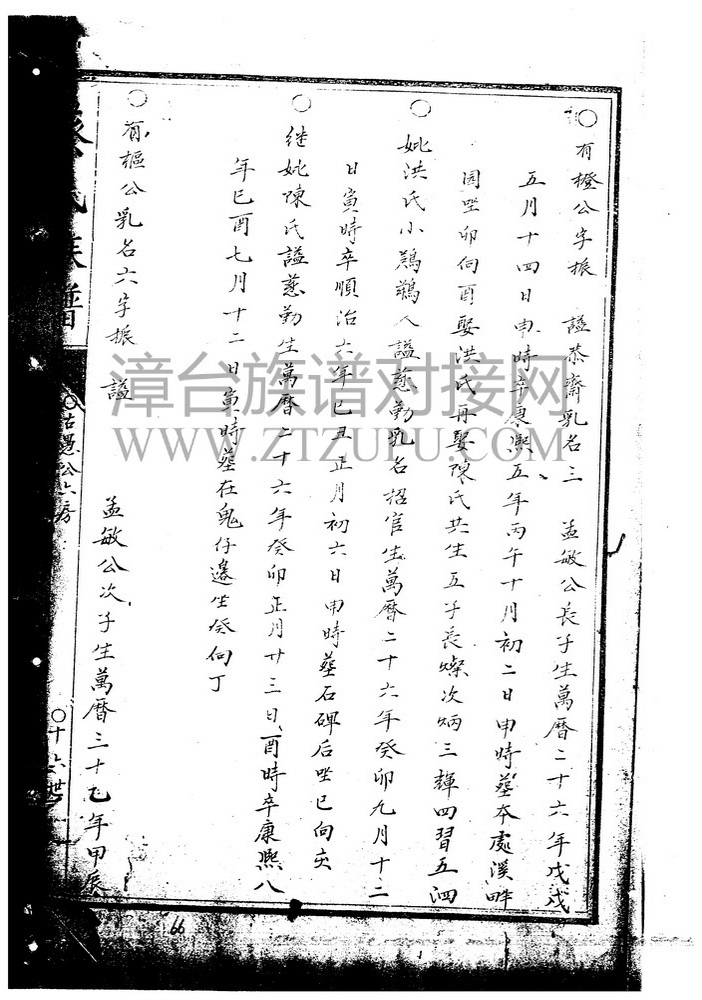 ○有橙公字振 諡恭齋乳名三 孟敏公長子生萬曆二十六年戊戌
五月十四日申時卒康熙五年丙午十月初二日申時葬本處溪畔
园坐卯向酉娶洪氏再娶陳氏共生五子長燦次炳三輝四習五泗
○妣洪氏小鷓鴣人諡慈勤乳名招官生萬曆二十六年癸卯九月十二
日寅時卒順治六年巳丑正月初六日申時葬石碑后坐巳向亥
○继妣陳氏諡慈勤生萬曆二十六年癸卯正月廿三日酉時卒康熙八
年巳酉七月十二日寅時葬在鬼仔邊坐癸向丁
○有樞公乳名六字振 諡 孟敏公次子生萬曆三十年甲辰
氏族譜
○古愚公六房
○十六世
66
漳台族谱对接网
WWW.ZTZUPU.COM